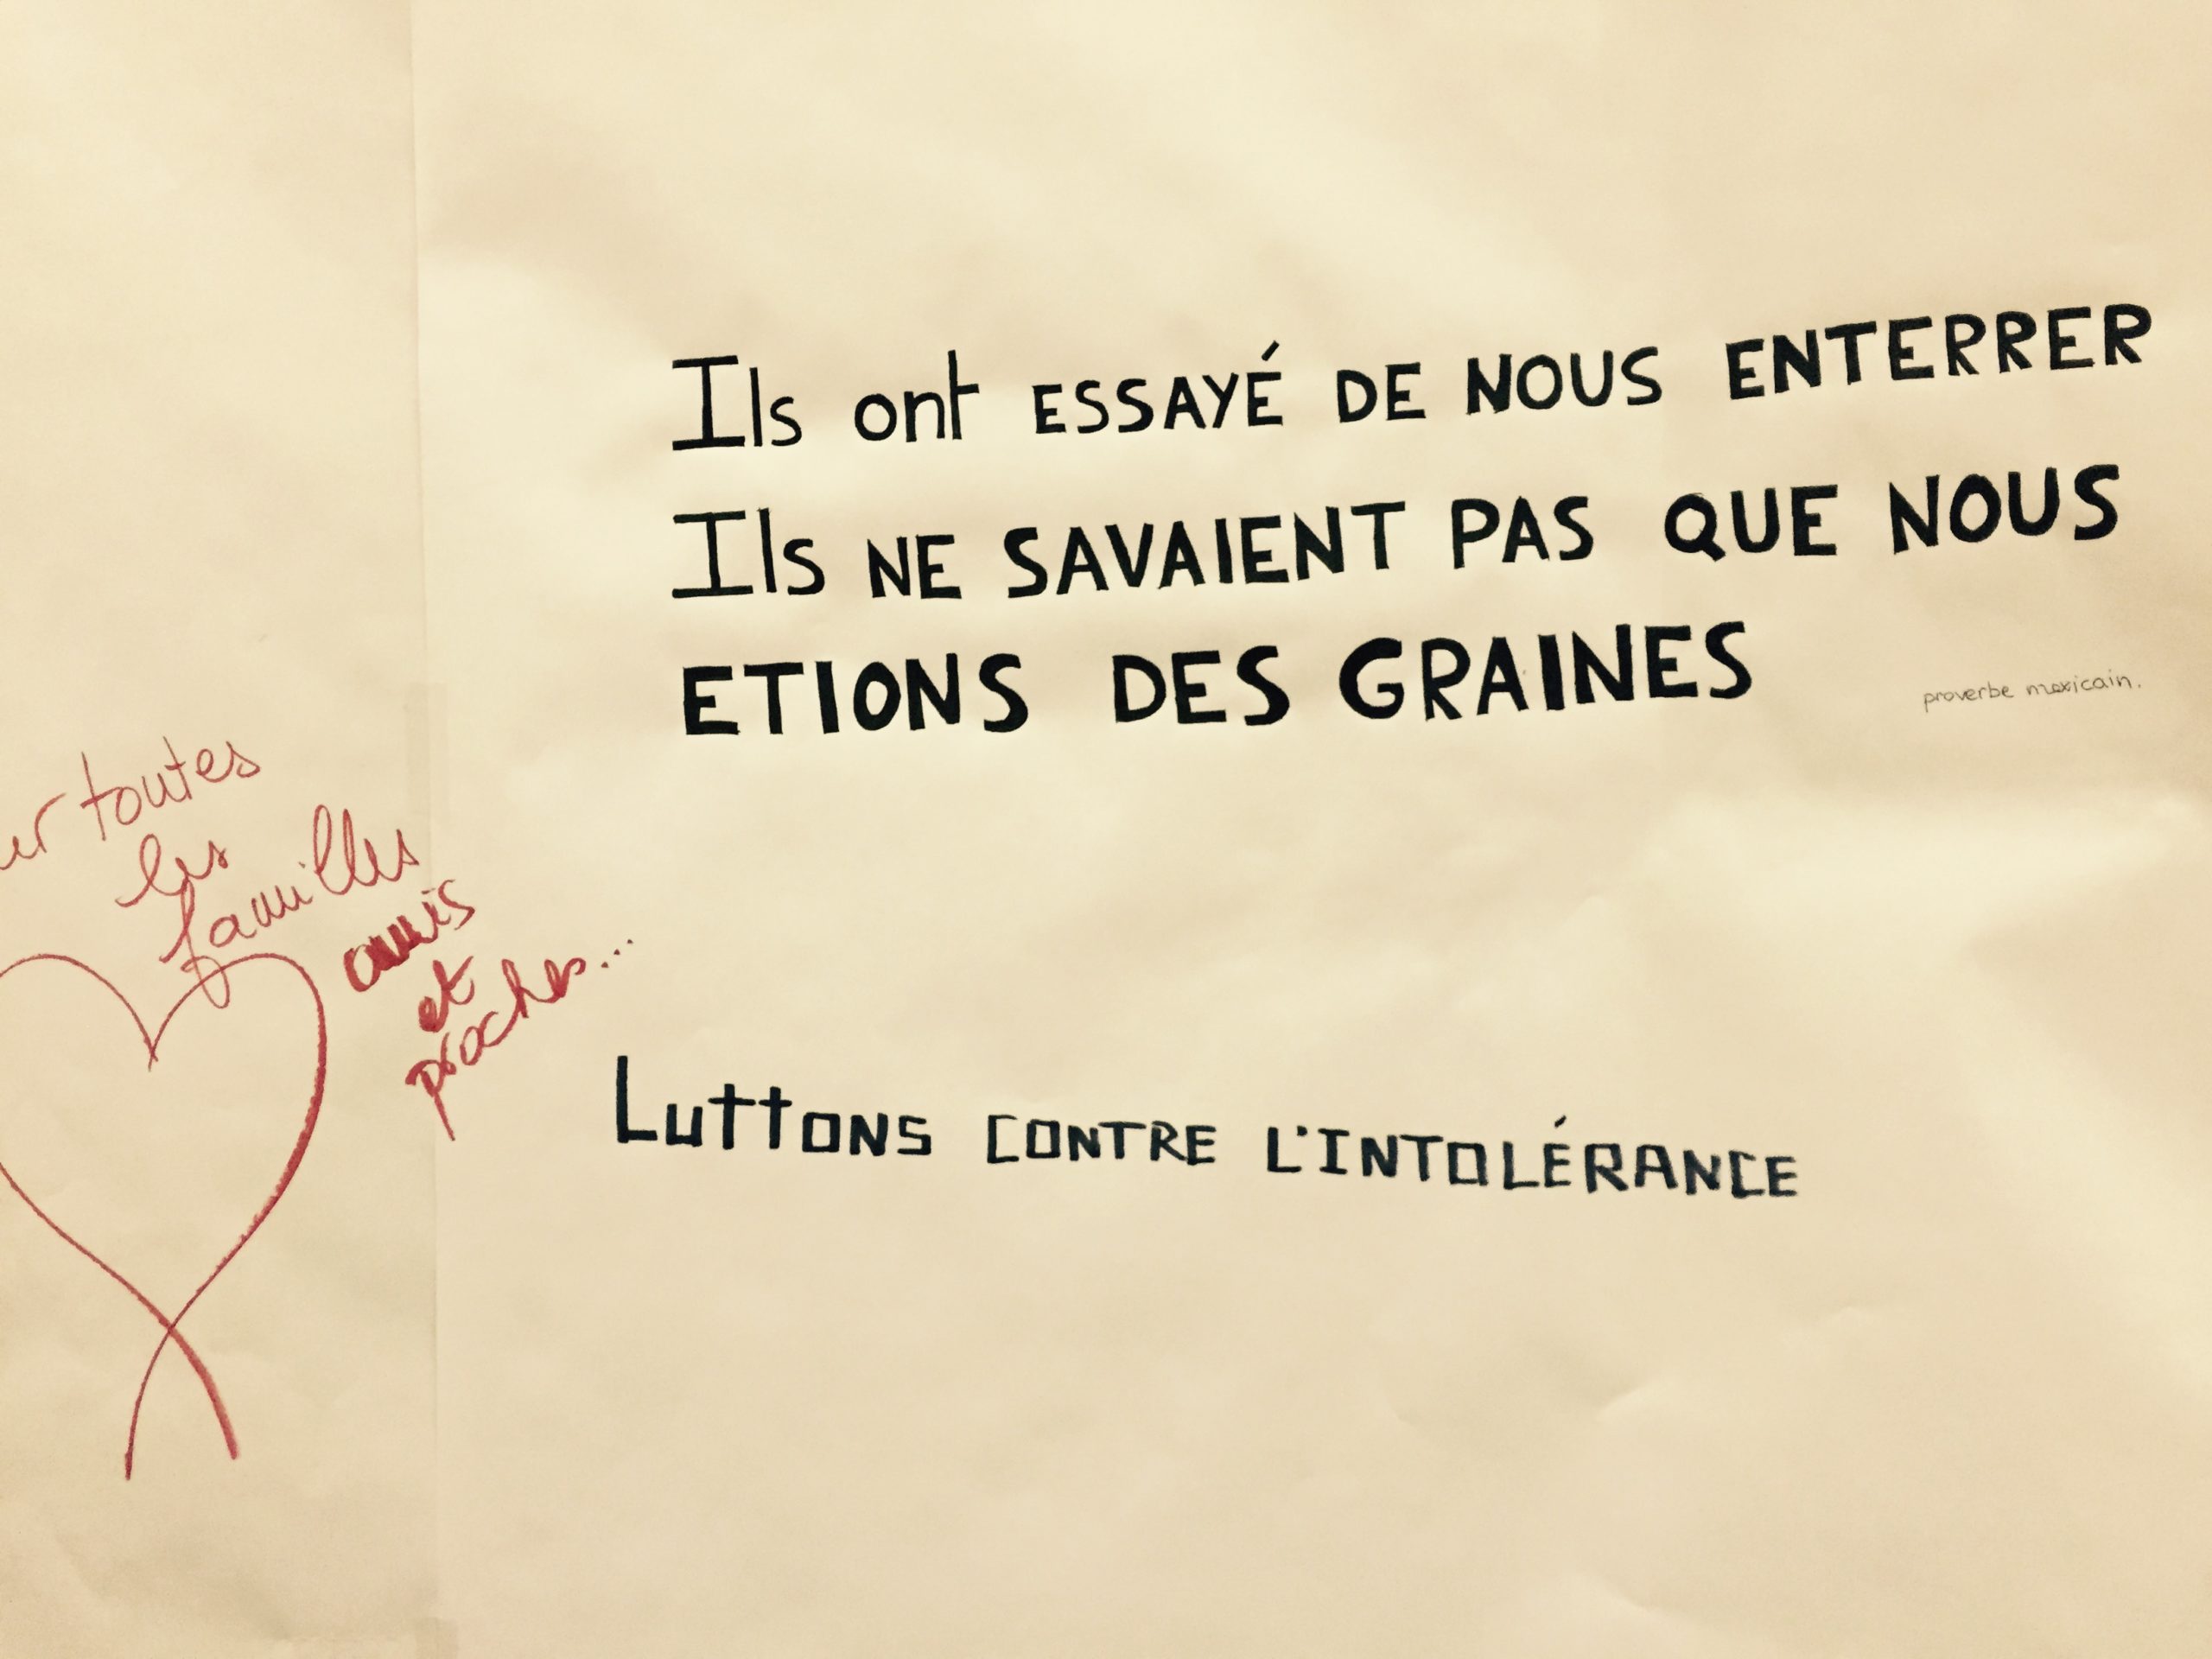 Ils ont ESSAYÉ DE NOUS ENTERRER
Ils NE SAVAIENT PAS QUE NOUS
ETIONS DES GRAINES
proverbe mexicain.
toutes
les
familles
amis
et
proches...
Luttons CONTRE L'INTOLÉRANCE